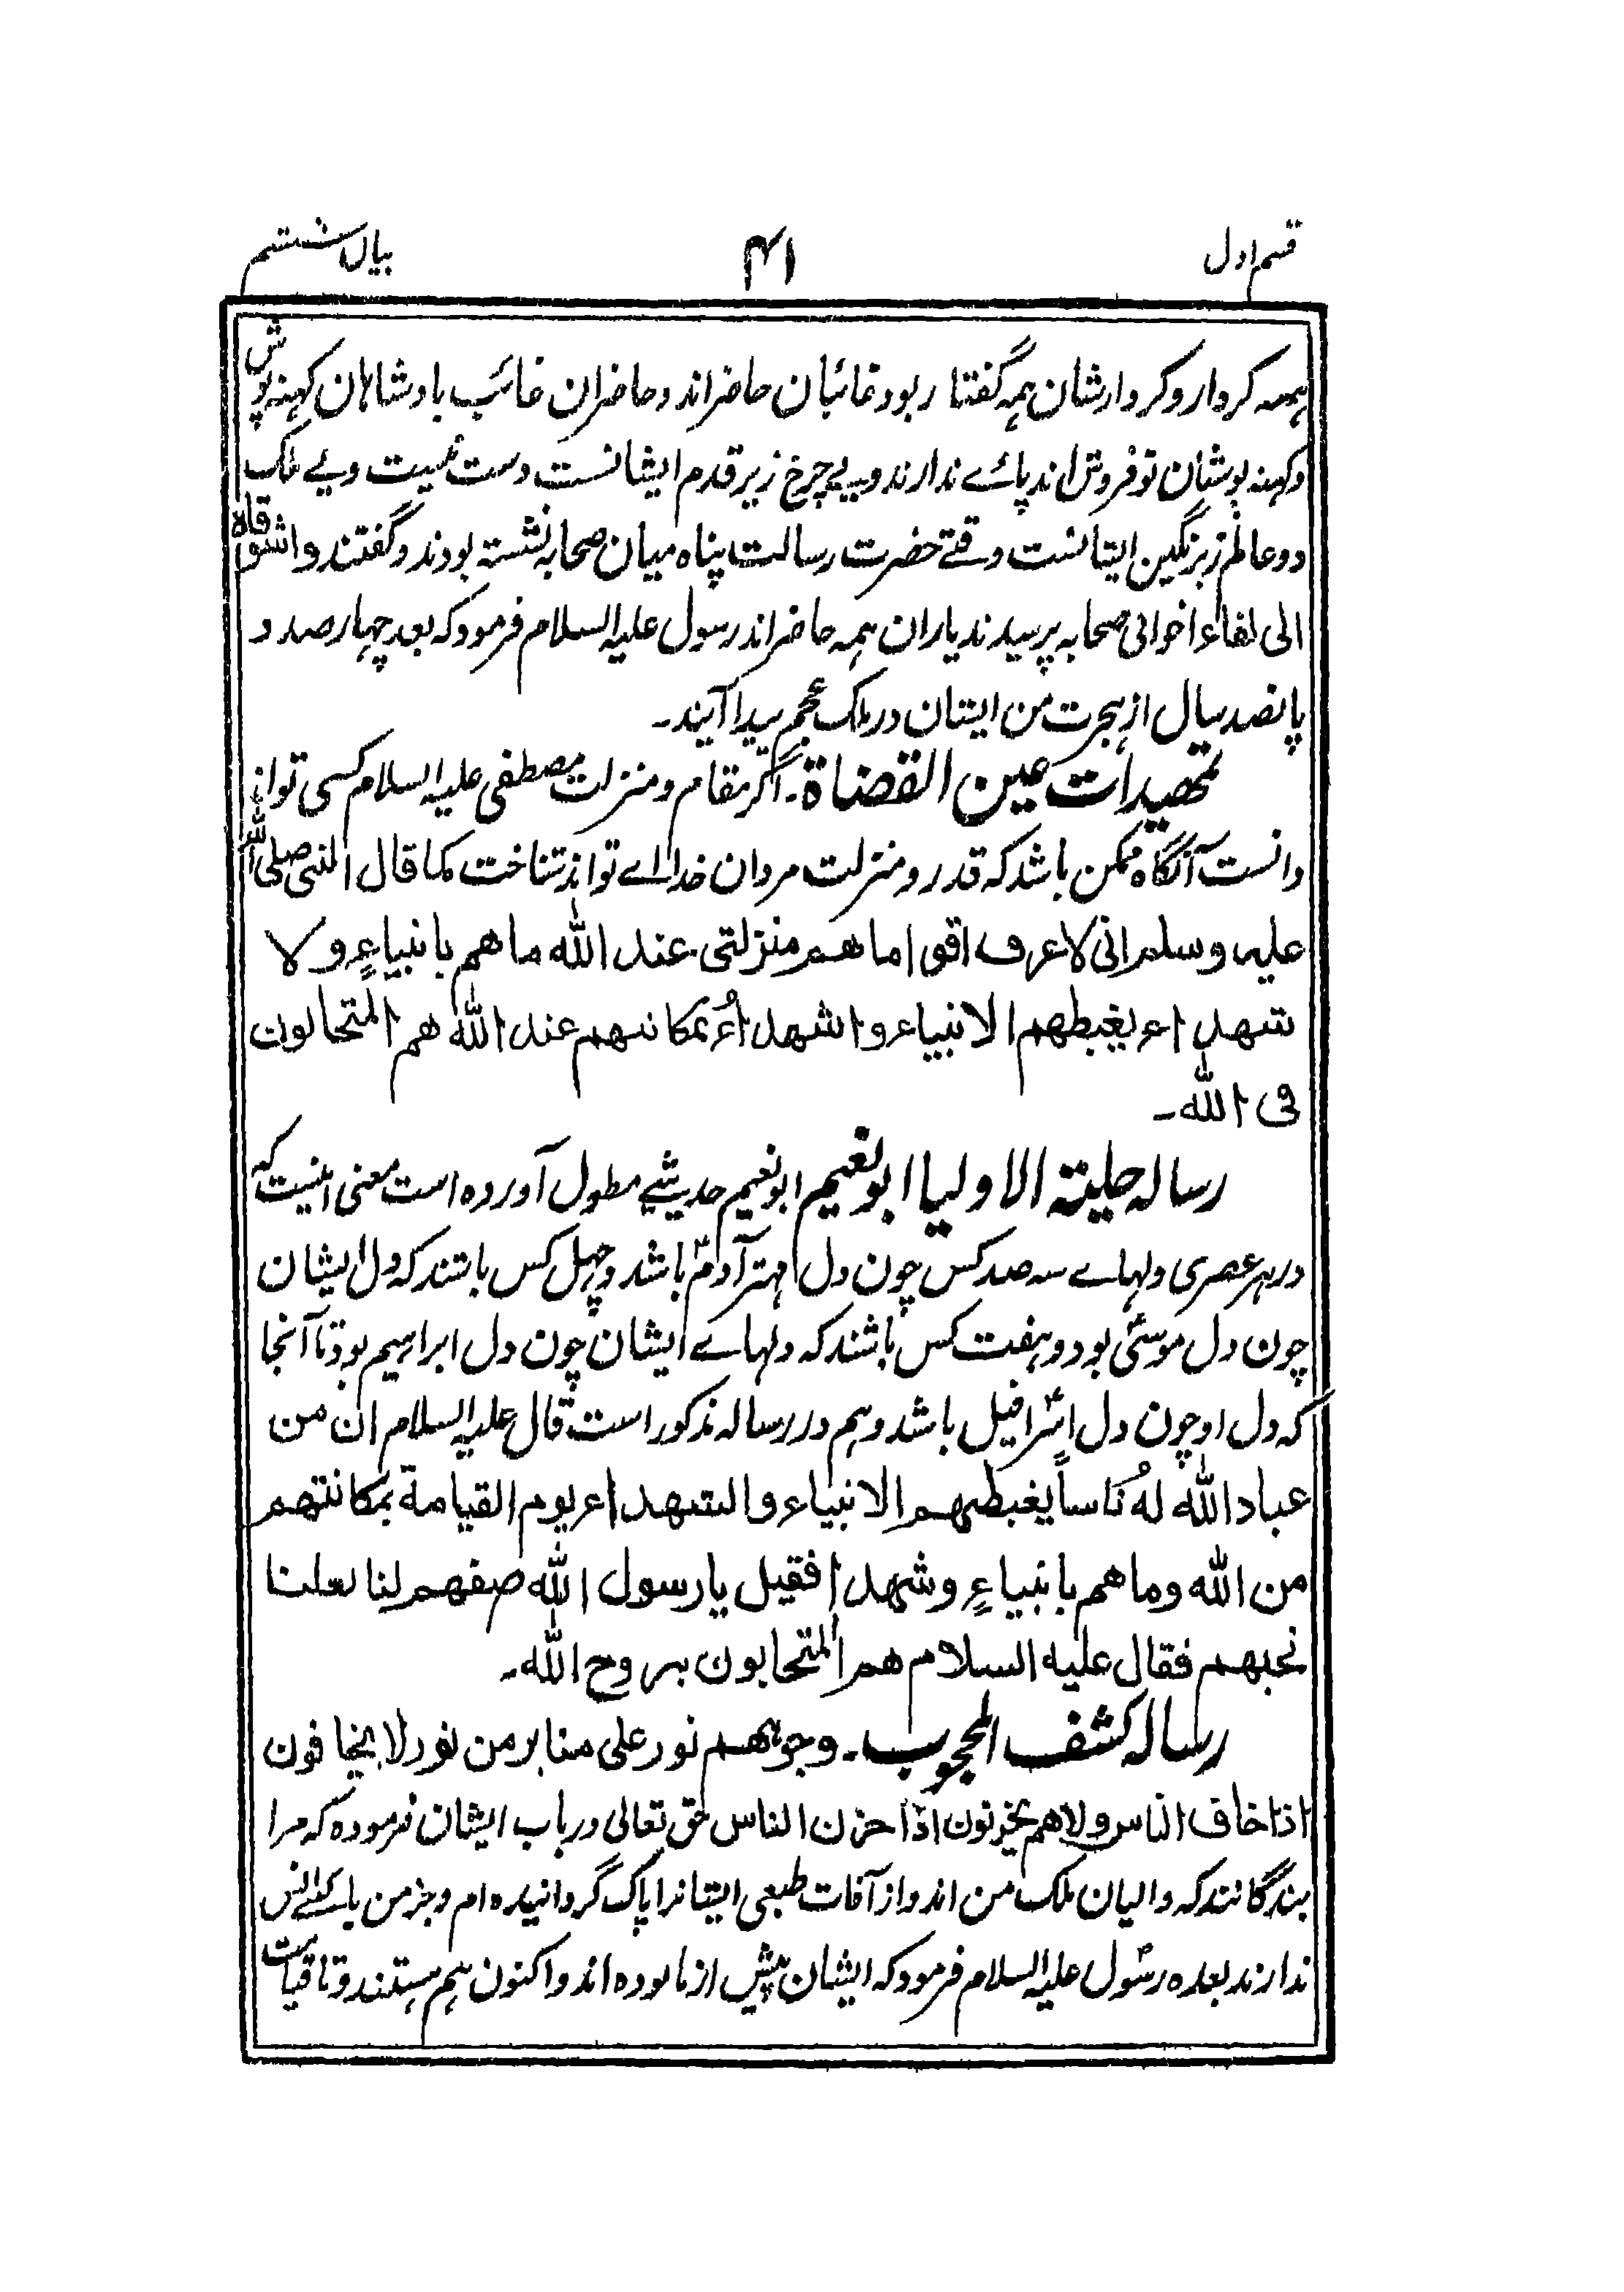 قسم اول
۴۱
بیان ششم
ہمہ کردار و کردارشان ہمہ گفتار بود غائبان حاضراند و حاضران غائب بادشاہان کہنہ پوش
وکہنہ پوشان نو فروش اند پائے ندارند و پی چرخ زیر قدم ایشانست دست نیست وپے ملک
دو عالم زیر نگین ایشانست وقتے حضرت رسالت پناہ میان صحابہ نشستہ بودند و گفتند واشوقاہ
الی لقاء اخوانی صحابہ پرسیدند یاران ہمہ حاضراند رسول علیہ السلام فرمود کہ بعد چہار صد و
پانصد سال از ہجرت من ایشان در ملک عجم پیدا آیند۔
تمھیدات عین القضاۃ۔ اگر مقام و منزلت مصطفی علیہ السلام کسی تواند
دانست آنگاہ ممکن باشد کہ قدر و منزلت مردان خدا اے تواند شناخت کما قال النبی صلی اللہ
علیہ وسلم انی لاعرف اقواما ھم منزلتی عند اللہ ما ھم بانبیاءٍ و لا
شھداء یغبطھم الانبیاء و الشھداءُ بمکانھم عند اللہ ھم المتحابون
فی اللہ۔
رسالہ حلیتہ الاولیا ابو نعیم ابو نعیم حدیثے مطول آوردہ است معنی اینست کہ
در ہر عصری دلہاے سہ صد کس چون دل مہتر آدمؑ باشد و چہل کس باشند کہ دل ایشان
چون دل موسیؑ بود و ہفت کس باشند کہ دلہاے ایشان چون دل ابراہیم بود تا آنجا
کہ دل او چون دل اسرافیلؑ باشد و ہم در رسالہ مذکور است قال علیہ السلام ان من
عباد اللہ لہُ نَاساً یغبطھم الانبیاء والشھداء یوم القیامۃ بمکانتھم
من اللہ وما ھم بانبیاءٍ و شھدا فقیل یا رسول اللہ صفھم لنا لعلنا
نحبھم فقال علیہ السلام ھم المتحابون بروح اللہ۔
رسالہ کشف المحجوب۔ وجوھھم نور علی منابر من نور لا یخافون
اذا خاف الناس ولا ھم یحزنون اذا حزن الناس حق تعالی در باب ایشان فرمودہ کہ مرا
بندگانند کہ والیان ملک من اند و از آفات طبعی ایشانرا پاک گردانیدہ ام و بجز من باکے انس
ندارند بعدہ رسولؐ علیہ السلام فرمود کہ ایشان پیش از ما بودہ اند و اکنون ہم ہستند و تا قیامت